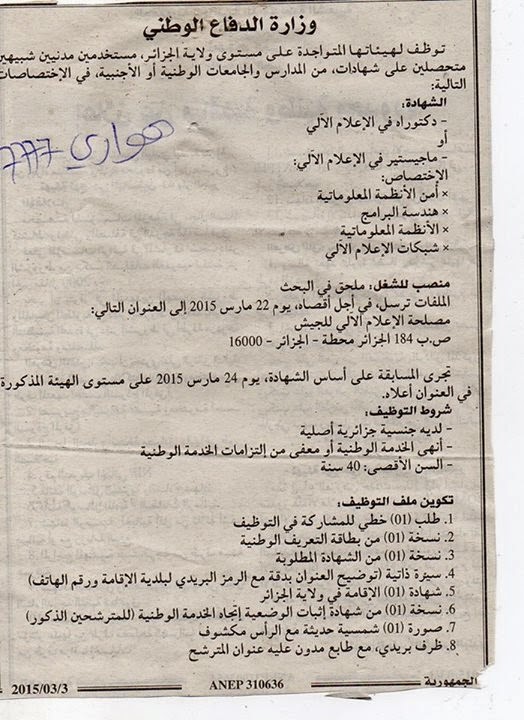 وزارة الدفاع الوطني
توظف لهيئاتها المتواجدة على مستوى ولاية الجزائر، مستخدمين مدنيين شبيهين
متحصلين على شهادات، من المدارس والجامعات الوطنية أو الأجنبية، في الإختصاصات
التالية:
الشهادة:
– دكتوراه في الإعلام الآلي
أو
– ماجيستير في الإعلام الآلي:
الإختصاص:
× أمن الأنظمة المعلوماتية
× هندسة البرامج
× الأنظمة المعلوماتية
× شبكات الإعلام الآلي
هواري 7777
منصب للشغل: ملحق في البحث
الملفات ترسل، في أجل أقصاه، يوم 22 مارس 2015 إلى العنوان التالي:
مصلحة الإعلام الآلي للجيش
ص.ب 184 الجزائر محطة – الجزائر – 16000
تجرى المسابقة على أساس الشهادة، يوم 24 مارس 2015 على مستوى الهيئة المذكورة
في العنوان أعلاه.
شروط التوظيف:
– لديه جنسية جزائرية أصلية
– أنهى الخدمة الوطنية أو معفى من إلتزامات الخدمة الوطنية
– السن الأقصى: 40 سنة
تكوين ملف التوظيف:
1. طلب (01) خطي للمشاركة في التوظيف
2. نسخة (01) من بطاقة التعريف الوطنية
3. نسخة (01) من الشهادة المطلوبة
4. سيرة ذاتية (توضيح العنوان بدقة مع الرمز البريدي لبلدية الإقامة ورقم الهاتف)
5. شهادة (01) الإقامة في ولاية الجزائر
6. نسخة (01) من شهادة إثبات الوضعية إتجاه الخدمة الوطنية (للمترشحين الذكور)
7. صورة (01) شمسية حديثة مع الرأس مكشوف
8. ظرف بريدي، مع طابع مدون عليه عنوان المترشح
الجمهورية ANEP 310636 2015/03/3